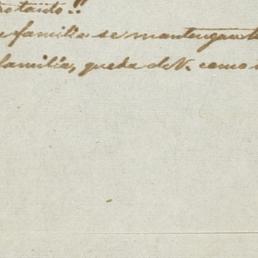 familia se mantengan
familia, queda de V. como